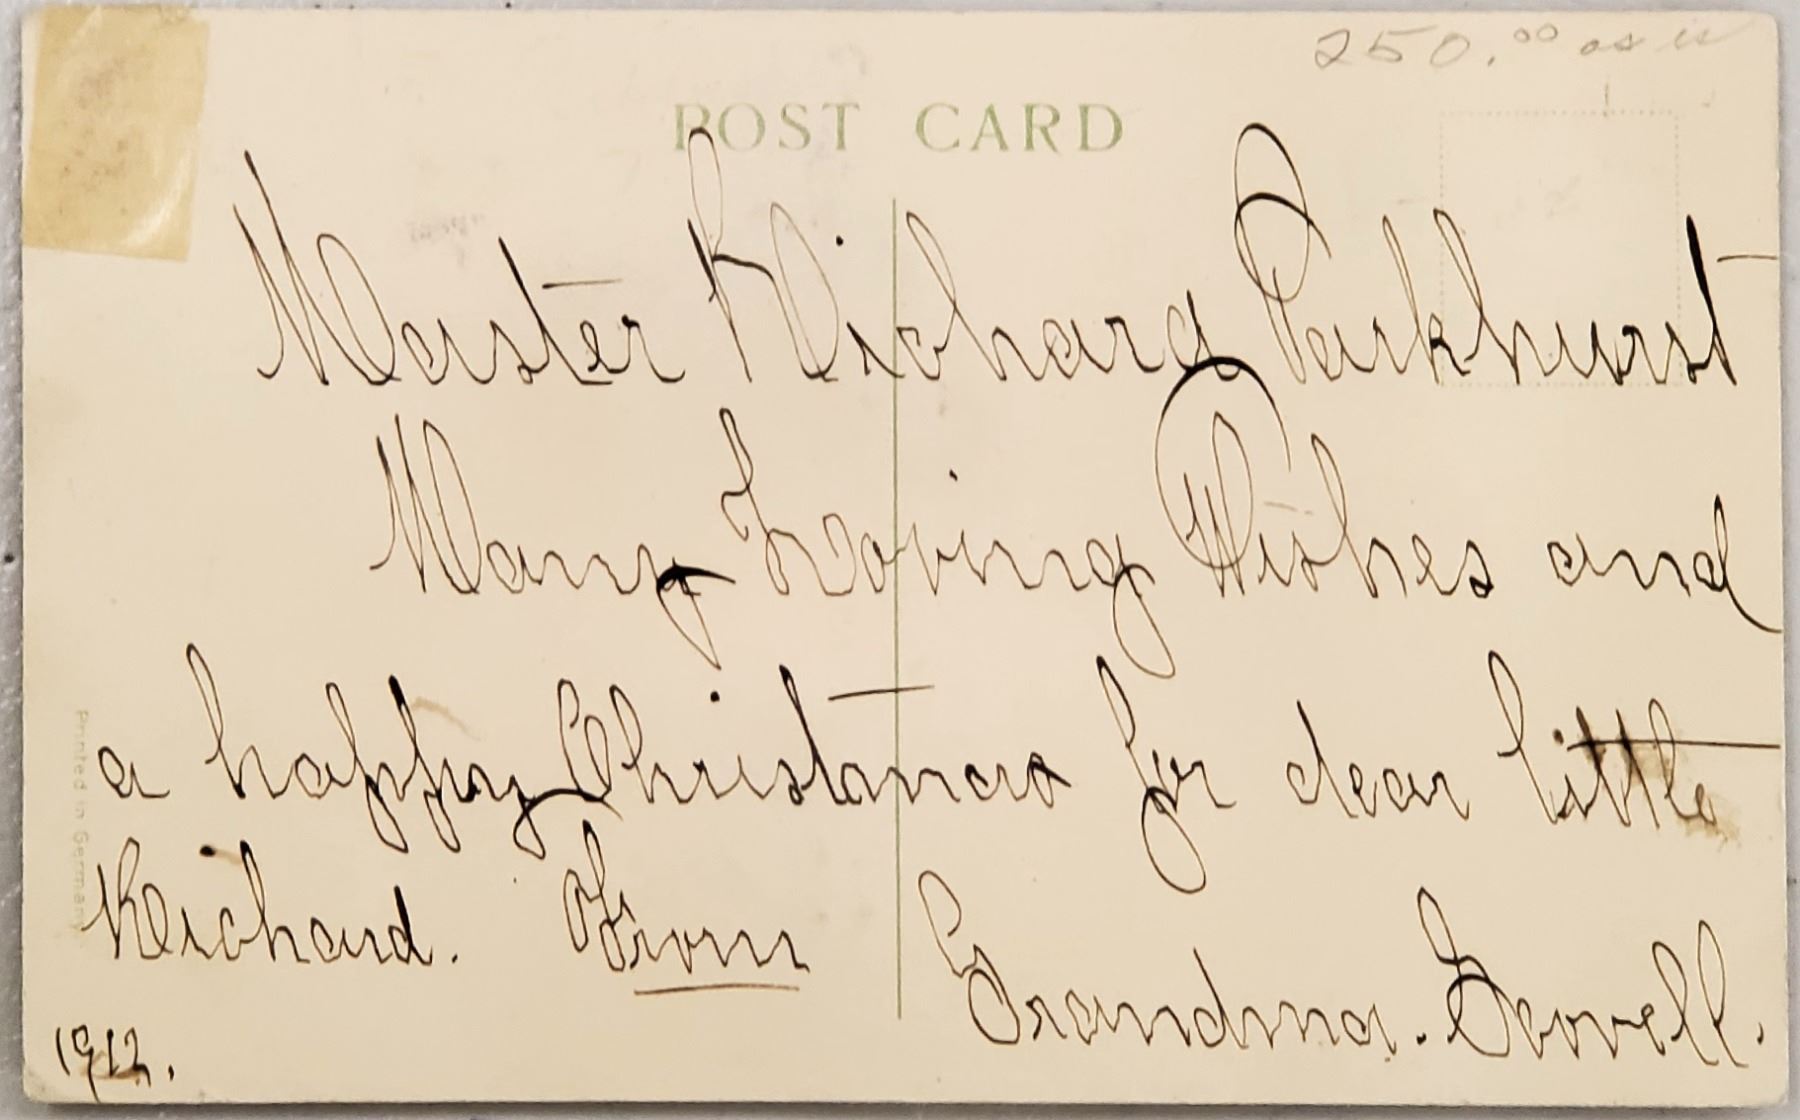 250.00 as is
POST CARD
Master Richard Parkhurst
Many Loving Wishes and
a happy Christmas for dear little
Richard. From
Grandma. Lowell.
1912.
Printed in Germany